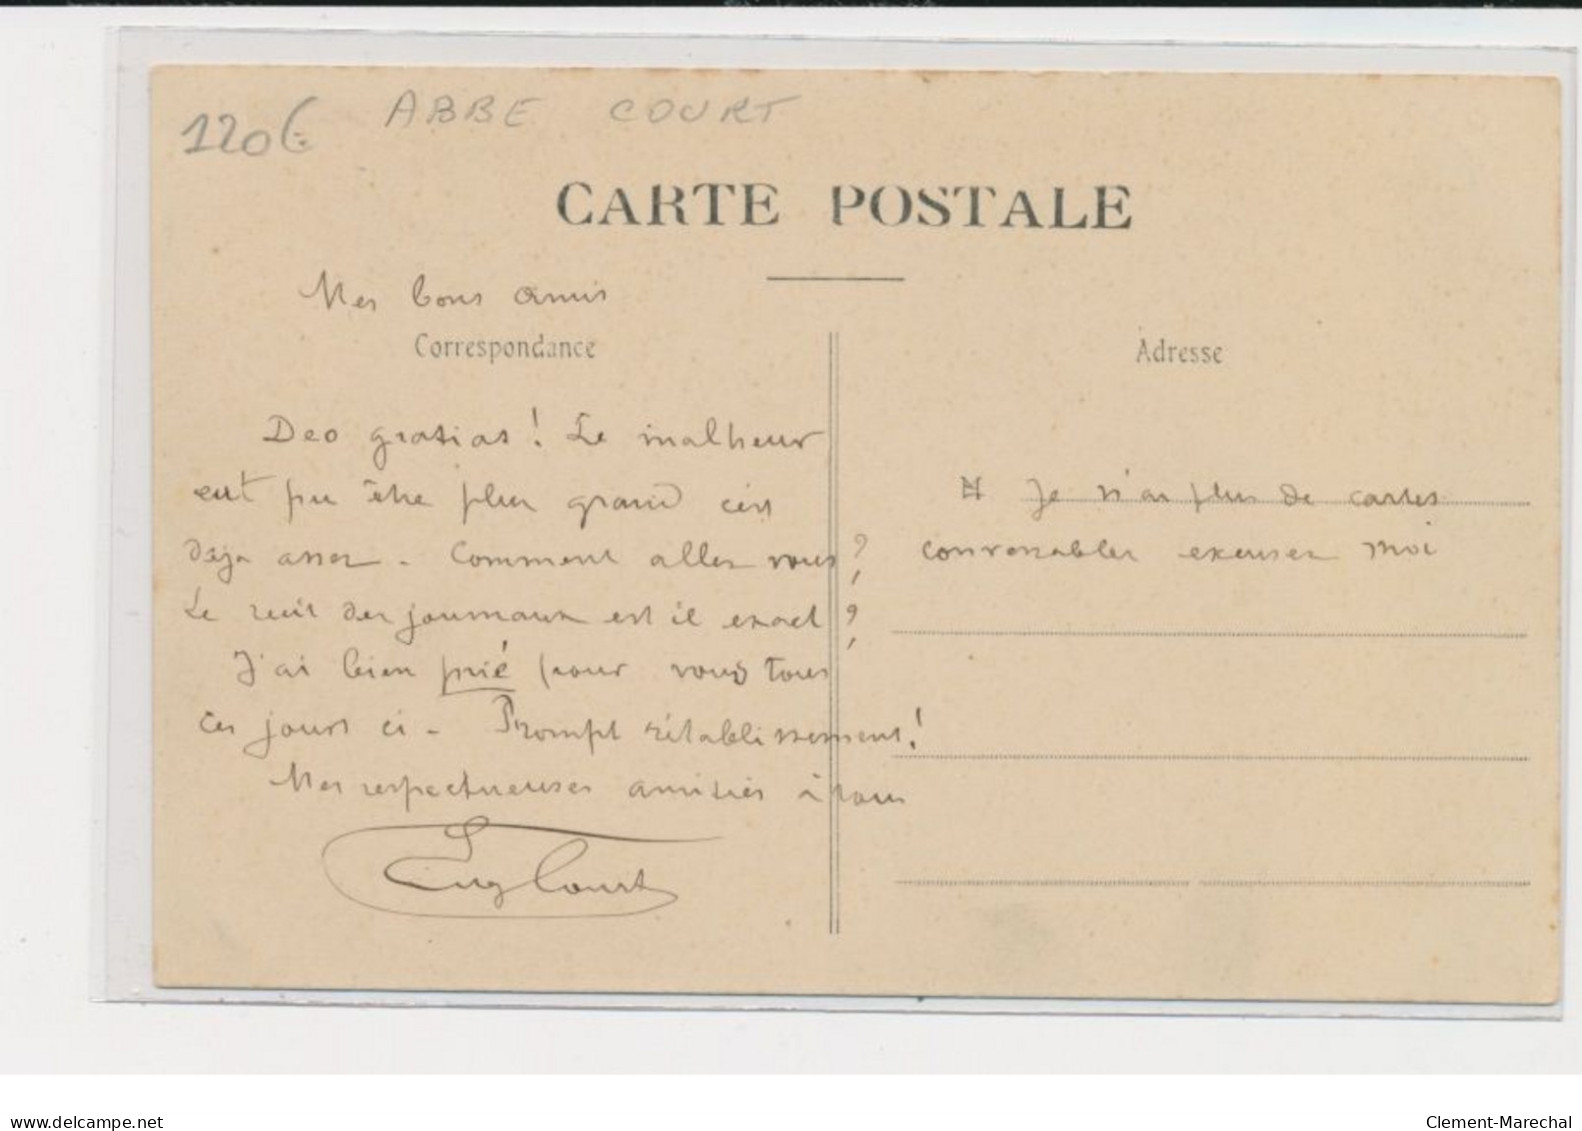 120€ ABBE COURT
CARTE POSTALE
Mes bons amis
Correspondance
Adresse
Deo gratias ! Le malheur
eut pu être plus grand c'est
déjà assez - Comment allez vous ?
Le récit des journaux est il exact ?
J'ai bien prié pour vous tous
ces jours ci - Prompt rétablissement !
Mes respectueuses amitiés à tous
Eug Court
N Je n'ai plus de cartes
convenables excusez moi
www.delcampe.net
Clement-Marechal